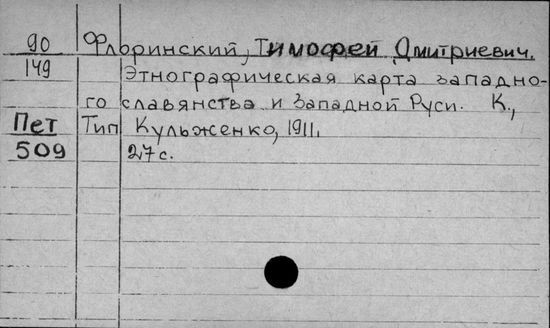 90 Флоринский, Тимофей Дмитриевич.
149 Этнографическая карта западно-
го славянства и Западной Руси. К.,
Пет Тип Кульженко, 1911.
509 27 с.